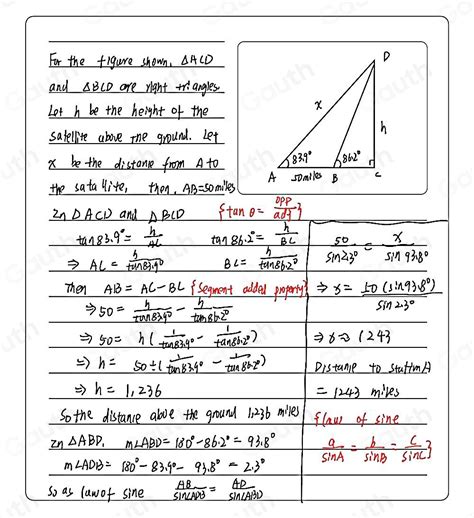 For the figure shown, ΔACD
and ΔBCD are right triangles
Let h be the height of the
satellite above the ground. Let
x be the distance from A to
the satallite, then, AB=50 miles
D
x
h
83.9°
86.2°
A
50miles
B
C
In ΔACD and ΔBCD {tan θ = opp/adj}
tan83.9° = h/AC tan86.2° = h/BC
⇒ AC = h/tan83.9° BC = h/tan86.2°
Then AB = AC - BC {Segment added property}
⇒ 50 = h/tan83.9° - h/tan86.2°
⇒ 50 = h(1/tan83.9° - 1/tan86.2°)
⇒ h = 50÷(1/tan83.9° - 1/tan86.2°)
⇒ h = 1,236
So the distance above the ground 1,236 miles
In ΔABD, m∠ABD = 180°-86.2° = 93.8°
m∠ADB = 180°-83.9°-93.8° = 2.3°
so as law of sine AB/sin∠ADB = AD/sin∠ABD
50/sin2.3° = x/sin93.8°
⇒ x = 50(sin93.8°)/sin2.3°
⇒ x ≈ 1243
Distance to station A
= 1243 miles
{law of sine
a/sinA = b/sinB = c/sinC}
Gauth